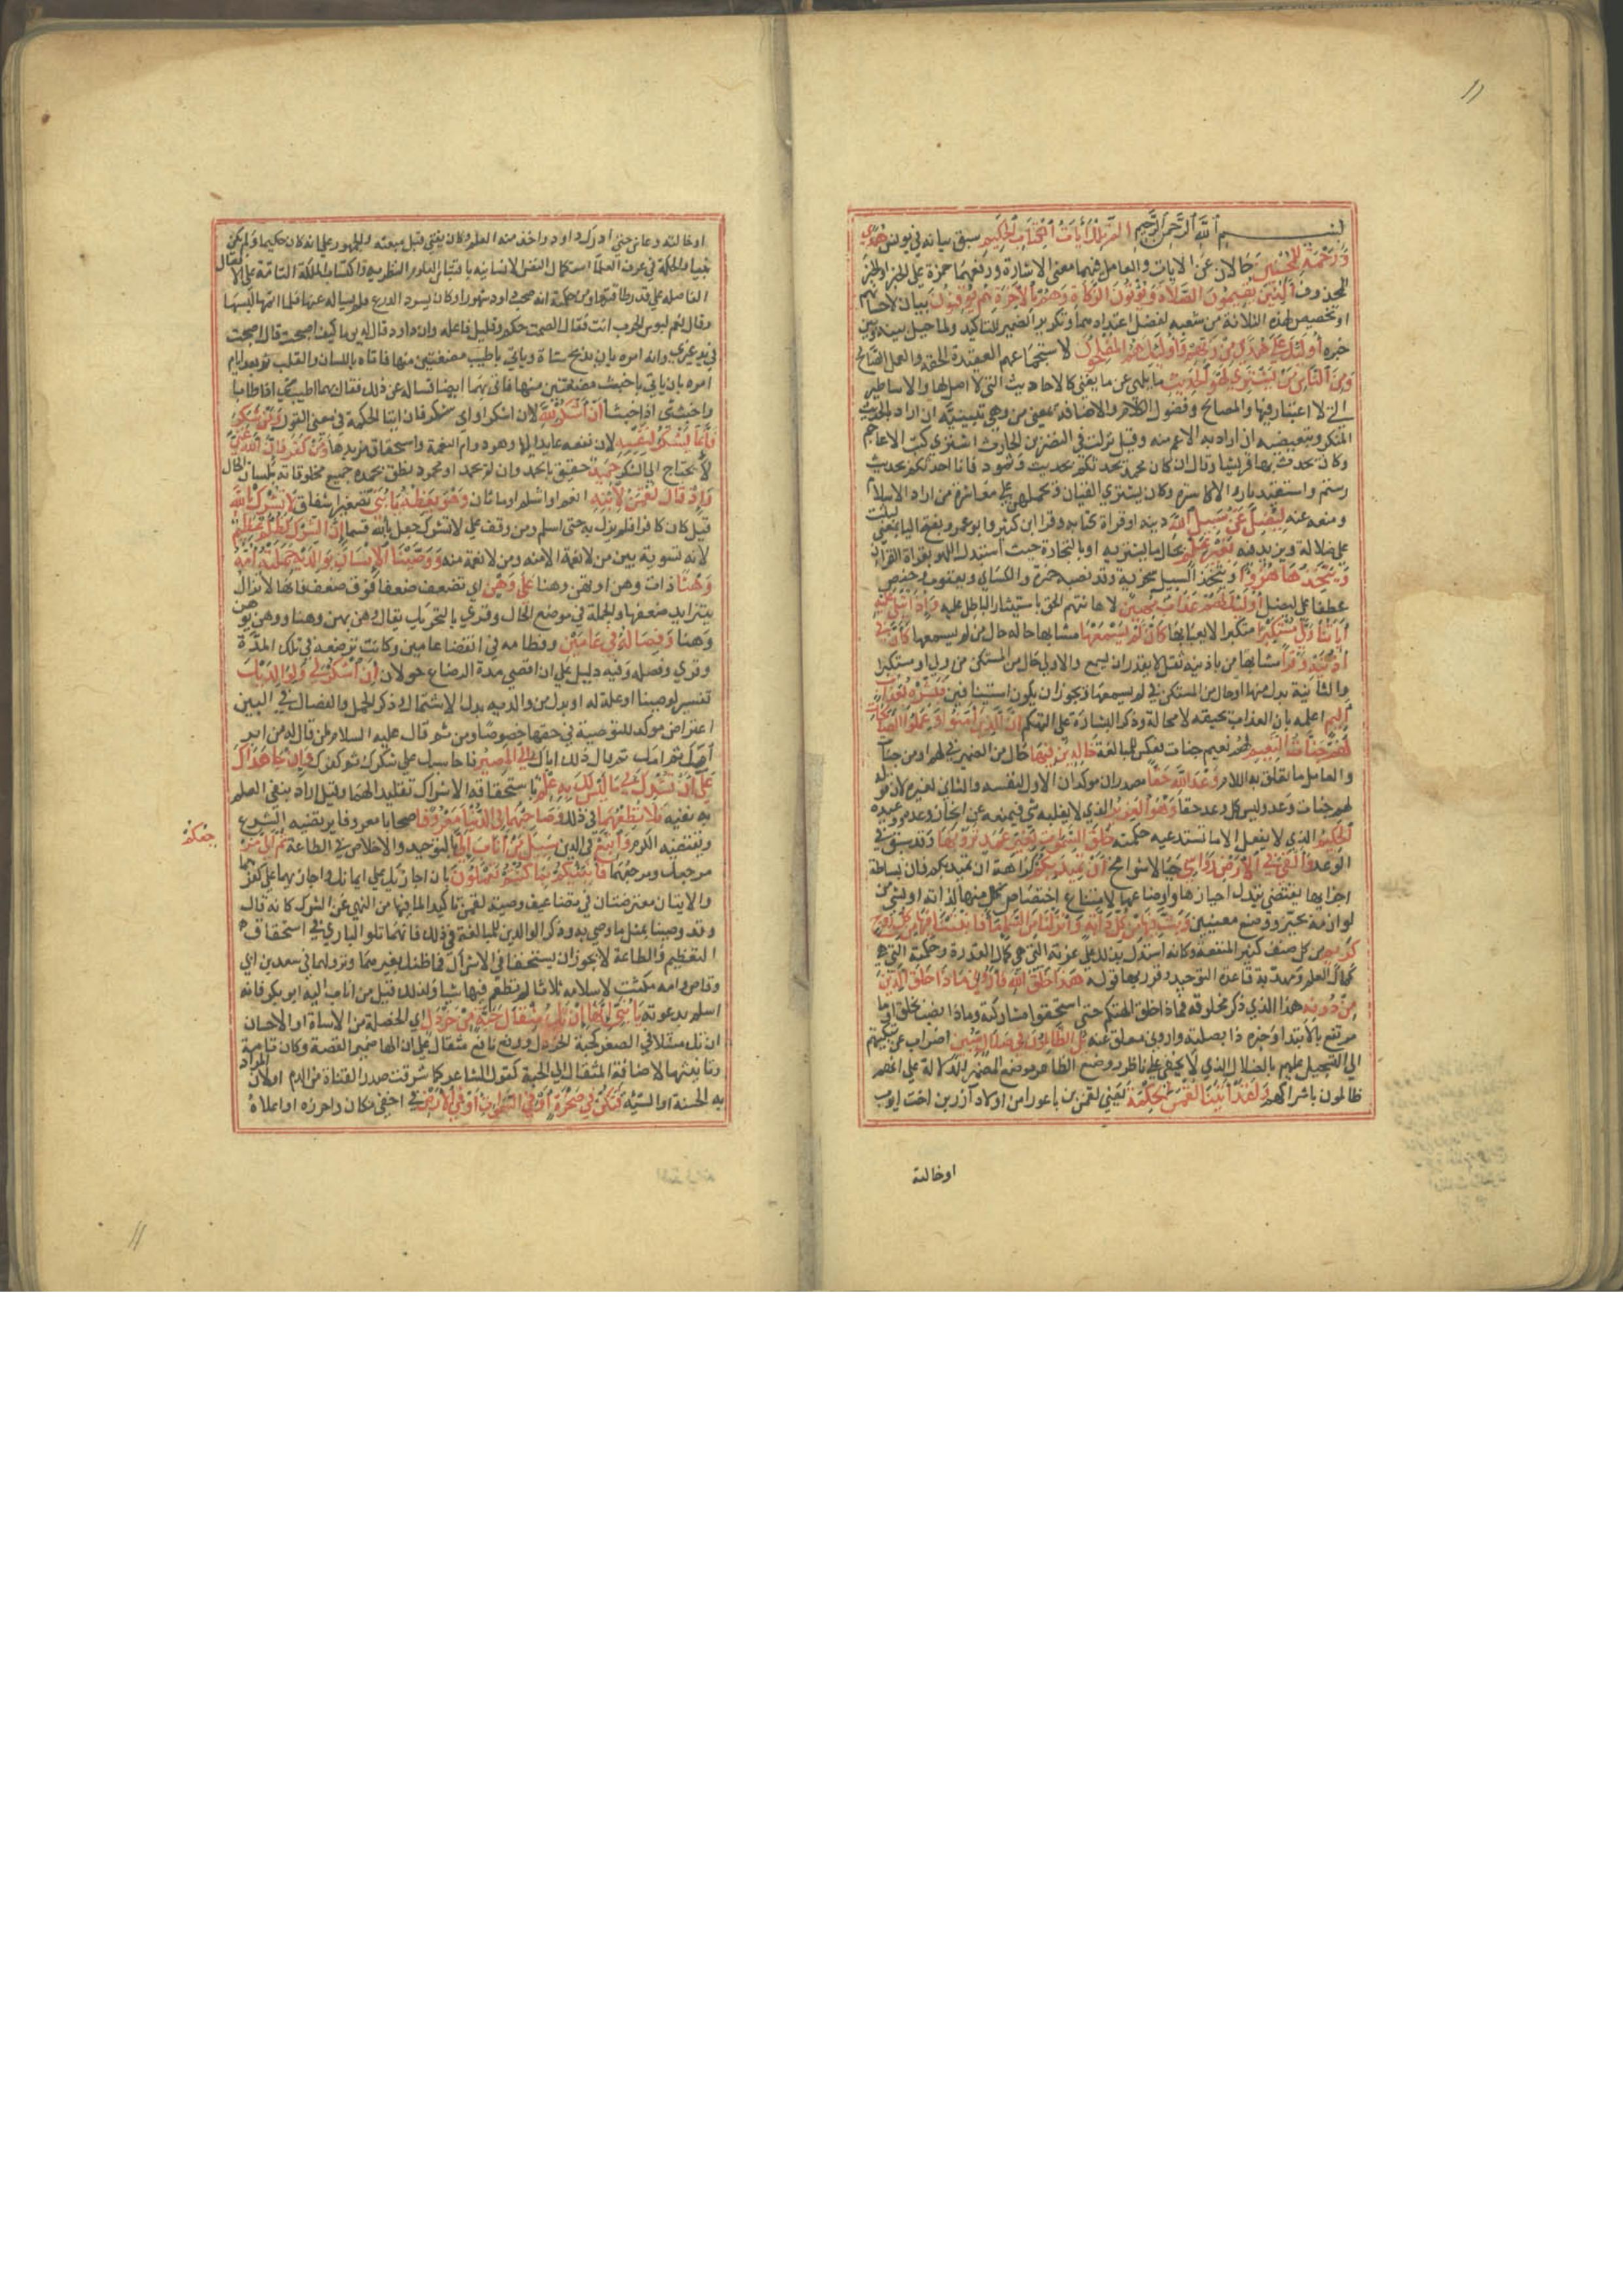 بسم الله الرحمن الرحيم الم تلك آيات الكتاب الحكيم سبق بيانه في يونس هدى
ورحمة للمحسنين حالان عن الايات والعامل فيهما معنى الاشارة ورفعهما حمزة على الخبر او الخبر
لمحذوف الذين يقيمون الصلاة ويؤتون الزكاة وهم بالآخرة هم يوقنون بيان لاحسانهم
او تخصيص لهذه الثلاثة من شعبه لفضل اعتداد بها وتكرير الضمير للتاكيد ولما حيل بينه وبين
خبره اولئك على هدى من ربهم واولئك هم المفلحون لاستجماعهم العقيدة الحقة والعمل الصالح
ومن الناس من يشتري لهو الحديث ما يلهى عن ما يغنى كالاحاديث التى لا اصل لها والاساطير
التي لا اعتبار فيها والمضاحك وفضول الكلام والاضافة بمعنى من وهي تبيينية ان اراد بالحديث
المنكر وتبعيضية ان اراد به الاعم منه وقيل نزلت في النضر بن الحارث اشترى كتب الاعاجم
وكان يحدث بها قريشا وقال ان كان محمد يحدثكم بحديث عاد وثمود فانا احدثكم بحديث
رستم واسفنديار والاكاسرة وكان يشتري القيان ويحملهن على معاشرة من اراد الاسلام
ومنعه عنه ليضل عن سبيل الله دينه او قراة كتابه وقرا ابن كثير وابو عمرو بفتح اليا بمعنى ليثبت
على ضلاله ويزيد فيه بغير علم بحال ما يشتريه او بالتجارة حيث استبدل اللهو بقراة القران
ويتخذها هزوا ويتخذ السبيل سخرية وقد نصبه حمزة والكسائي ويعقوب وحفص
عطفا على ليضل اولئك لهم عذاب مهين لاهانتهم الحق باستيثار الباطل عليه واذا تتلى عليه
آياتنا ولى مستكبرا متكبرا لا يعبا بها كأن لم يسمعها مشابها حاله حال من لم يسمعها كأن في
اذنيه وقرا مشابها من باذنيه ثقل لا يقدر ان يسمع والاولى حال من المستكن من ولى او مستكبرا
والثانية بدل منها او حال من المستكن في لم يسمعها ويجوز ان يكون استينافين فبشره بعذاب
اليم اعلمه بان العذاب يحيقه لا محالة وذكر البشارة على التهكم ان الذين امنوا وعملوا الصالحات
لهم جنات النعيم لهم نعيم جنات فعكس للمبالغة خالدين فيها حال من الضمير في لهم او من جنات
والعامل ما تعلق به اللام وعد الله حقا مصدران موكدان الاول لنفسه والثاني لغيره لان قوله
لهم جنات وعد وليس كل وعد حقا وهو العزيز الذي لا يغلبه شي فيمنعه عن انجاز وعده ووعيده
الحكيم الذي لا يفعل الا ما تستدعيه حكمته خلق السموات بغير عمد ترونها وقد سبق في
الرعد والقى في الارض رواسي جبالا شوامخ ان تميد بكم كراهة ان تميد بكم فان بساطة
اجزايها يقتضي تبدل احيازها واوضاعها لامتناع اختصاص كل منها لذاته او لشي من
لوازمه بحيز ووضع معينين وبث فيها من كل دابة وانزلنا من السماء ماء فانبتنا فيها من كل زوج
كريم من كل صنف كثير المنفعة وكانه استدل بذلك على عزته التي هي كمال القدرة وحكمته التي هي
كمال العلم ومهد به قاعدة التوحيد وقررها بقوله هذا خلق الله فاروني ماذا خلق الذين
من دونه هذا الذي ذكر مخلوقه فماذا خلق الهتكم حتى استحقوا مشاركته وماذا نصب بخلق او ما
مرتفع بالابتدا وخبره ذا بصلته واروني معلق عنه بل الظالمون في ضلال مبين اضراب عن تبكيتهم
الى التسجيل عليهم بالضلال الذي لا يخفى على ناظر ووضع الظاهر موضع المضمر للدلالة على انهم
ظالمون باشراكهم ولقد آتينا لقمن الحكمة يعني لقمن بن باعورا من اولاد آزر بن اخت ايوب
اوخالته
اوخالته وعاش حتى ادرك داود واخذ منه العلم وكان يفتى قبل مبعثه والجمهور على انه كان حكيما ولم يكن
نبيا والحكمة في عرف العلما استكمال النفس الانسانية باقتباس العلوم النظرية واكتساب الملكة التامة على الافعال
الفاضلة على قدر طاقتها ومن حكمته انه صحب داود شهورا وكان يسرد الدرع فلم يساله عنها فلما اتمها لبسها
وقال نعم لبوس الحرب انت فقال الصمت حكم وقليل فاعله وان داود قال له يوما كيف اصبحت قال اصبحت
في يد غيري وانه امره بان يذبح شاة وياتي باطيب مضغتين منها فاتاه باللسان والقلب ثم بعد ايام
امره بان ياتي باخبث مضغتين منها فاتى بهما ايضا فساله عن ذلك فقال هما اطيب شي اذا طابا
واخبث شي اذا خبثا أن اشكر لله لان اشكر او اى شكر فان ايتا الحكمة في معنى القول ومن يشكر
فانما يشكر لنفسه لان نفعه عايد اليها وهو دوام النعمة واستحقاق مزيدها ومن كفر فان الله غني
لا يحتاج الى الشكر حميد حقيق بالحمد وان لم يحمد او محمود ينطق بحمده جميع مخلوقاته بلسان الحال
واذ قال لقمن لابنه انعم او اشكم او ماثان وهو يعظه يا بني تصغير اشفاق لا تشرك بالله
قيل كان كافرا فلم يزل به حتى اسلم ومن وقف على لا تشرك جعل بالله قسما ان الشرك لظلم عظيم
لانه تسوية بين من لا نعمة الا منه ومن لا نعمة منه ووصينا الانسان بوالديه حملته امه
وهنا ذات وهن او تهن وهنا على وهن اي تضعف ضعفا فوق ضعف فانها لا تزال
يتزايد ضعفها والجملة في موضع الحال وقري بالتحريك يقال وهن يهن وهنا ووهن يوهن
وهنا وفصاله في عامين وفطامه في انقضا عامين وكانت ترضعه في تلك المدة
وقري وفصله وفيه دليل على ان اقصى مدة الرضاع حولان أن اشكر لي ولوالديك
تفسير لوصينا او علة له او بدل من والديه بدل الاشتمال وذكر الحمل والفصال في البين
اعتراض موكد للتوصية في حقها خصوصا ومن ثم قال عليه السلام لمن قال له من ابر
امك ثم امك ثم قال ذلك اباك الي المصير فاحاسبك على شكرك وكفرك وان جاهداك
على أن تشرك بي ما ليس لك به علم باستحقاقه الاشراك تقليدا لهما وقيل اراد بنفى العلم
به نفيه فلا تطعهما في ذلك وصاحبهما في الدنيا معروفا صحابا معروفا يرتضيه الشرع
ويقتضيه الكرم واتبع في الدين سبيل من اناب الي بالتوحيد والاخلاص في الطاعة ثم الي مرجعكم
مرجعك ومرجعهما فانبئكم بما كنتم تعملون بان اجازيك على ايمانك واجازيهما على كفرهما
والايتان معترضتان في تضاعيف وصية لقمن تاكيدا لما فيها من النهي عن الشرك كانه قال
وقد وصينا بمثل ما وصى به وذكر الوالدين للمبالغة في ذلك فانهما تلو الباري في استحقاق
التعظيم والطاعة لا يجوز ان يستحقا في الاشراك فما ظنك بغيرهما ونزولهما في سعد بن ابي
وقاص وامه مكثت لاسلامه ثلاثا لم تطعم فيها شيا ولذلك قيل من اناب اليه ابو بكر فانه
اسلم بدعوته يا بني انها ان تك مثقال حبة من خردل اي الخصلة من الاساة او الاحسان
ان تك مثلا في الصغر كحبة الخردل ورفع نافع مثقال على ان الها ضمير القصة وكان تامة
وتانيثها لاضافة المثقال الى الحبة كقول الشاعر كما شرقت صدر القناة من الدم او لان المراد
به الحسنة او السيئة فتكن في صخرة او في السموات او في الارض في اخفى مكان واحرزه او اعلاه